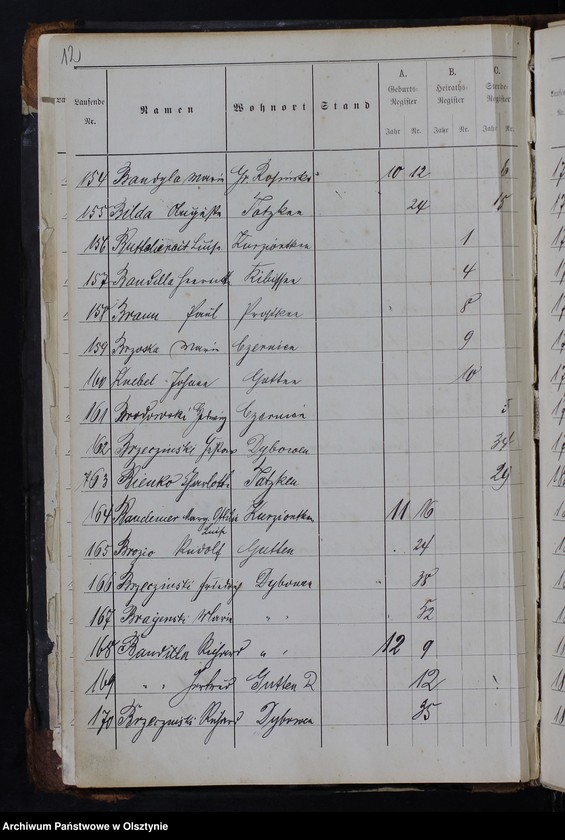 12
A. B. C.
Laufende Nr. Namen Wohnort Stand Geburts-Register Heiraths-Register Sterbe-Register
Jahr Nr. Jahr Nr. Jahr Nr.
154 Bandyla Marie Gr. 10 12 6
155 Bilda Auguste Tatzken 24 15
156 Luise Kurziontken 1
157 Bandilla Kibissen 4
158 Braun Paul Prostken 8
159 Brzoska Marie Czernien 9
160 Knebel Johann Gutten 10
161 Brodowski Hedwig Czernien 5
162 Brzezinski Gustav Dybowen 34
163 Bienko Charlotte Tatzken 29
164 Marg. Ottilie Kurziontken 11 16
Luise
165 Brozio Rudolf Gutten 24
166 Brzezinski Friedrich Dybowen 38
167 Marie " " 52
168 Bandilla Richard " " 12 9
169 " " Gertrud Gutten 12
170 Brzezinski Richard Dybowen 35
Archiwum Państwowe w Olsztynie